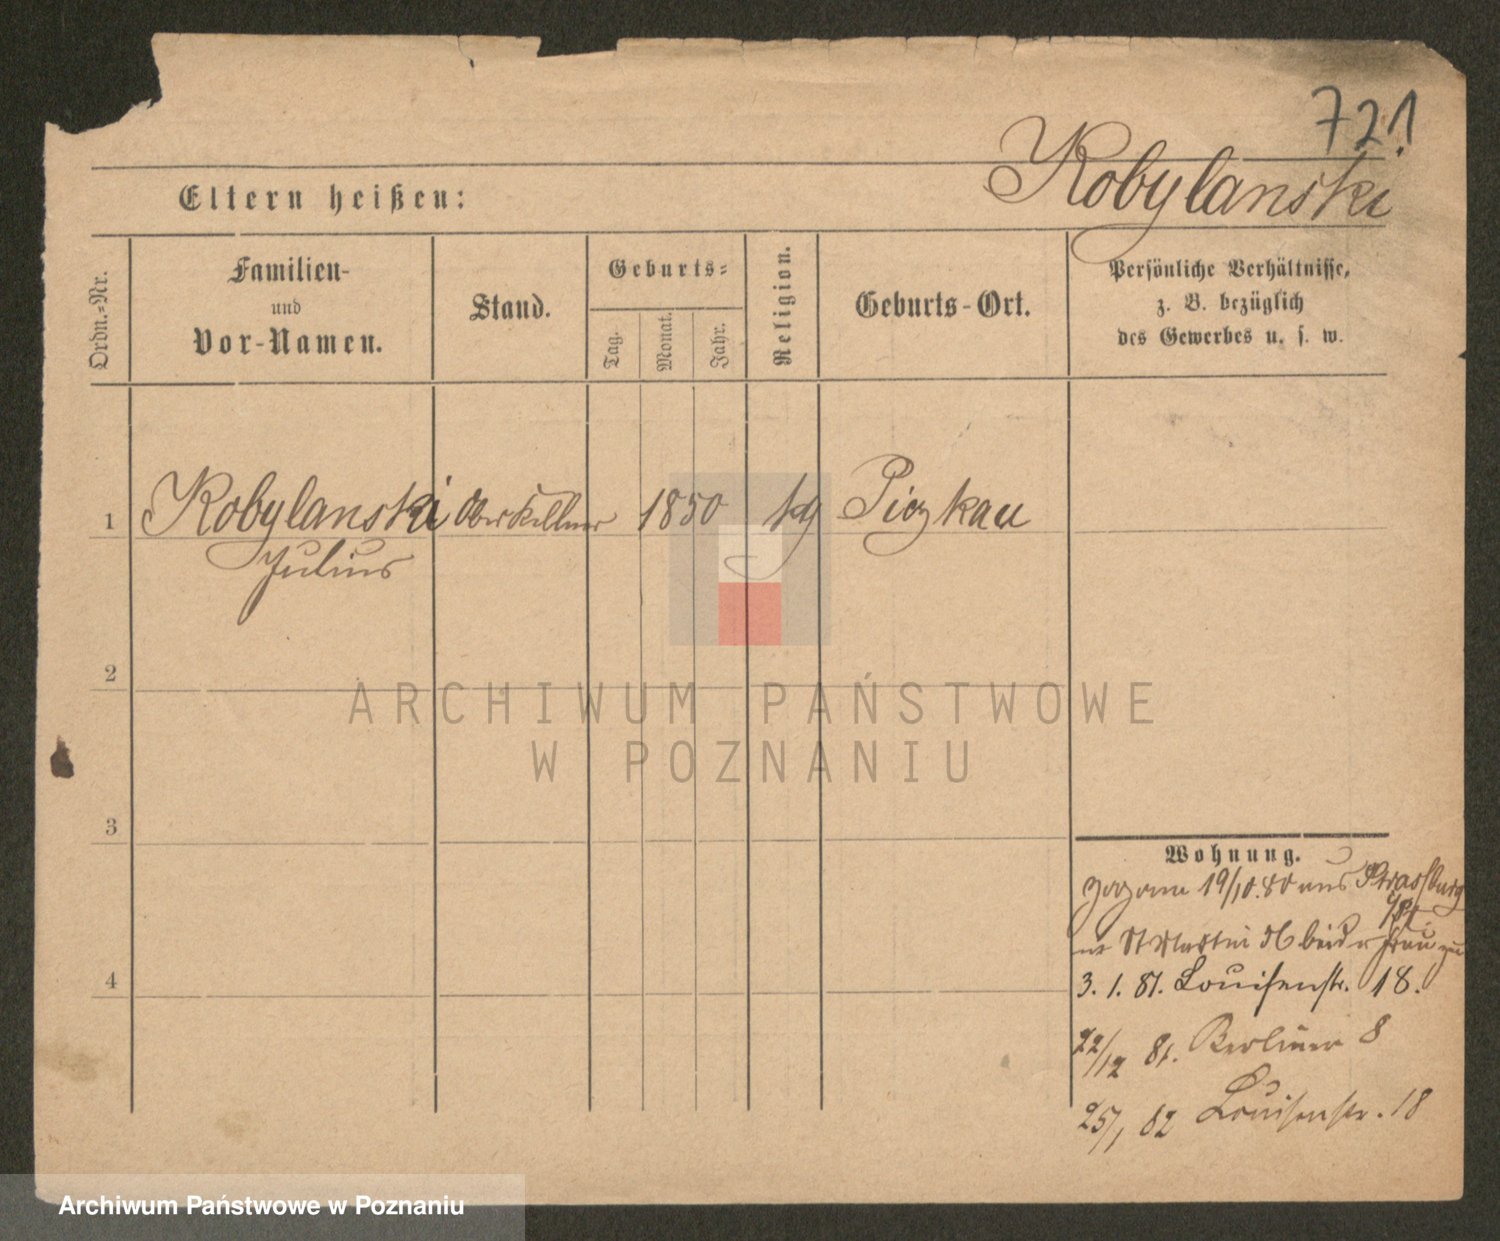 721
Kobylanski
Eltern heißen:
Ordn.-Nr.
Familien-
und
Vor-Namen.
Stand.
Geburts-
Tag.
Monat.
Jahr.
Religion.
Geburts-Ort.
Persönliche Verhältnisse,
z. B. bezüglich
des Gewerbes u. s. w.
1 Kobylanski Oberkellner 1850 kg Piezkau
Julius
2
ARCHIWUM PAŃSTWOWE
W POZNANIU
3
4
Wohnung.
zogen 19/10.80 aus Strassburg
St Martin
3. 1. 81. Louisenstr. 18.
22/12 81. Berliner 8
25/1 82 Louisenstr. 18
Archiwum Państwowe w Poznaniu